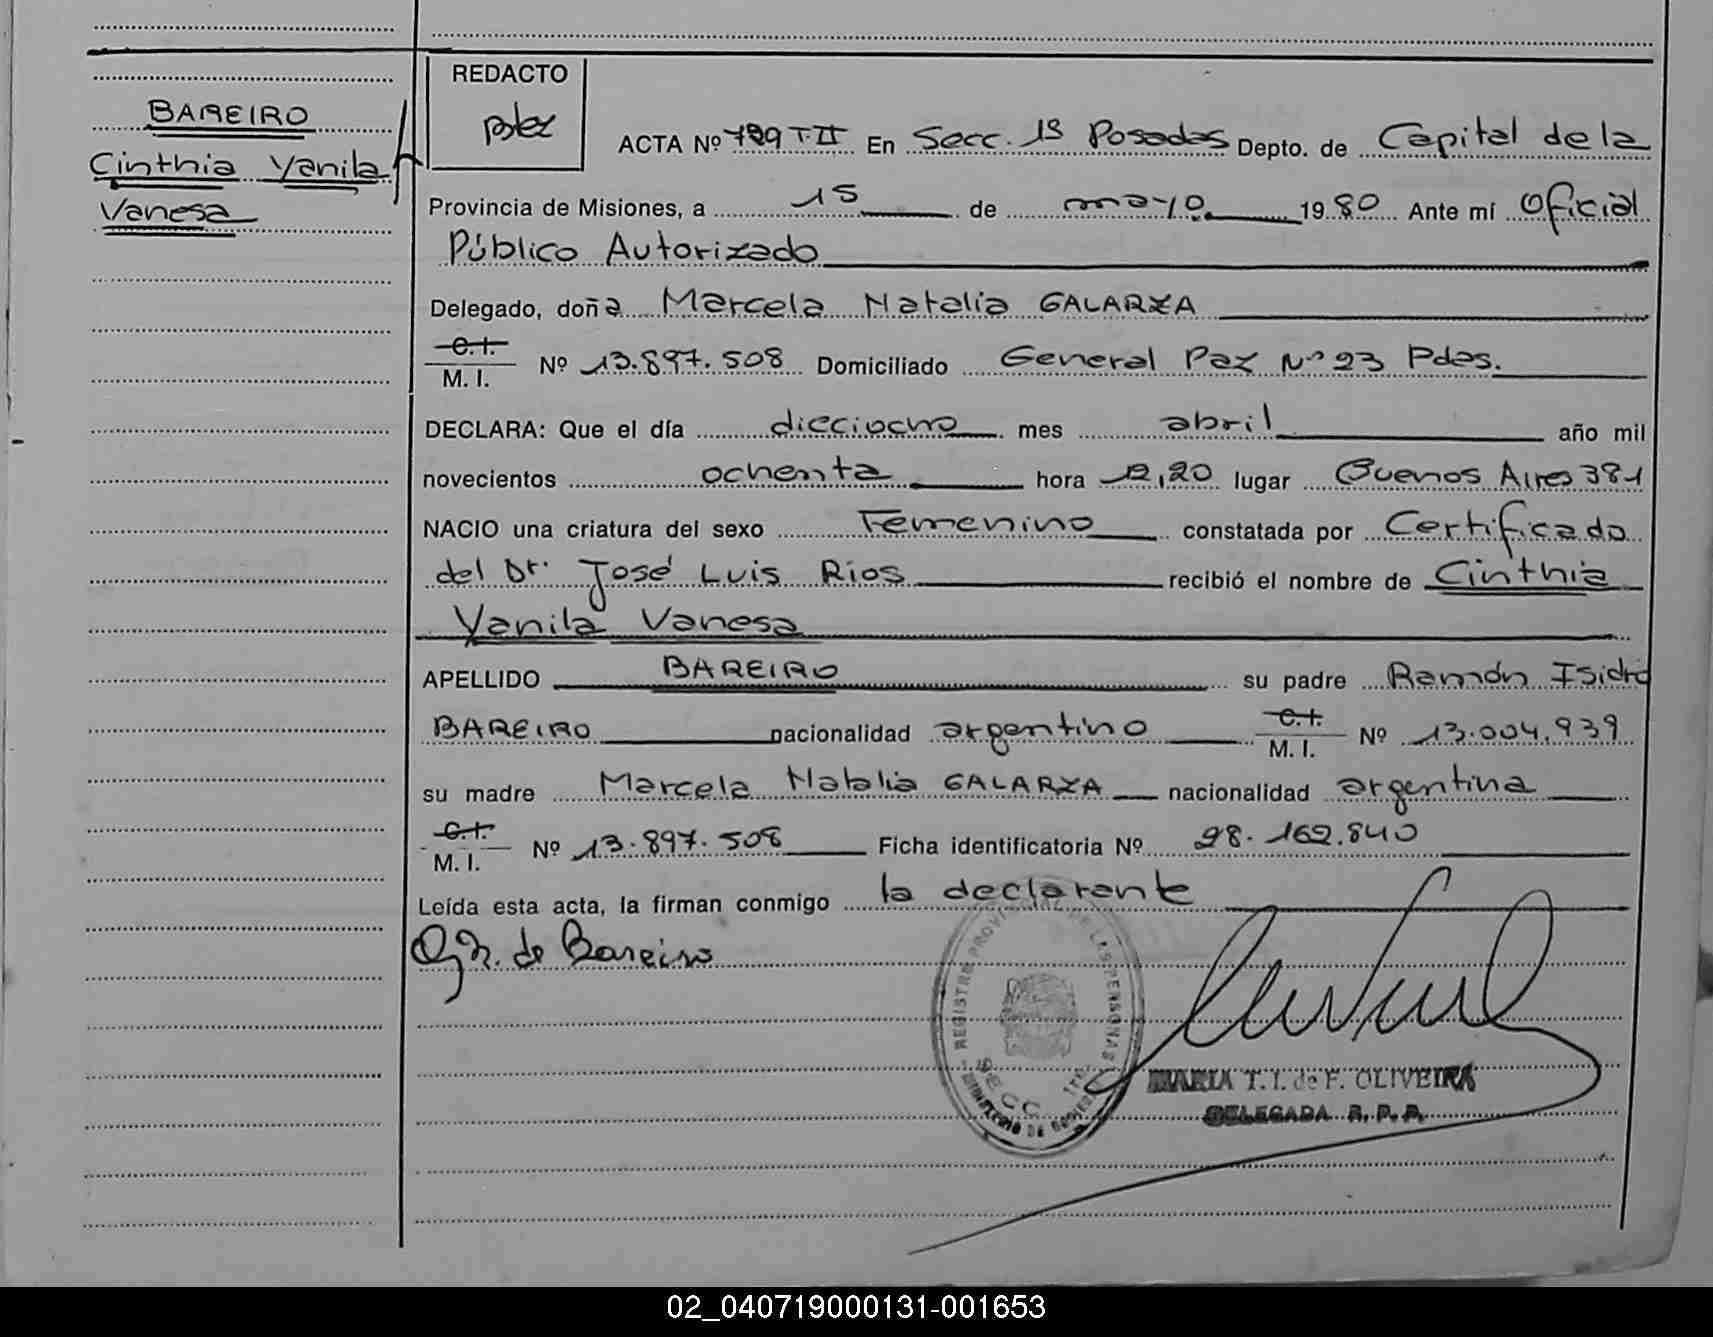 REDACTO
BAREIRO
Cinthia Yanila
Vanesa
ACTA Nº 799 T.II En Secc. 1ª Posadas Depto. de Capital de la
Provincia de Misiones, a 15 de mayo 1980 Ante mí Oficial
Público Autorizado
Delegado, doña Marcela Natalia GALARZA
C.I.
M.I. Nº 13.897.508 Domiciliado General Paz Nº 23 Pdas.
DECLARA: Que el día dieciocho mes abril año mil
novecientos ochenta hora 12,20 lugar Buenos Aires 381
NACIO una criatura del sexo Femenino constatada por Certificado
del Dr. José Luis Rios recibió el nombre de Cinthia
Yanila Vanesa
APELLIDO BAREIRO su padre Ramón Isidro
BAREIRO nacionalidad argentino C.I. M.I. Nº 13.004.939
su madre Marcela Natalia GALARZA nacionalidad argentina
C.I.
M.I. Nº 13.897.508 Ficha identificatoria Nº 28.162.840
Leída esta acta, la firman conmigo la declarante
de Bareiro
REGISTRO PROVINCIAL DE LAS PERSONAS
SECC. 1ra.
MINISTERIO DE GOBIERNO
MARIA T. I. de F. OLIVEIRA
DELEGADA R. P. P.
02_040719000131-001653